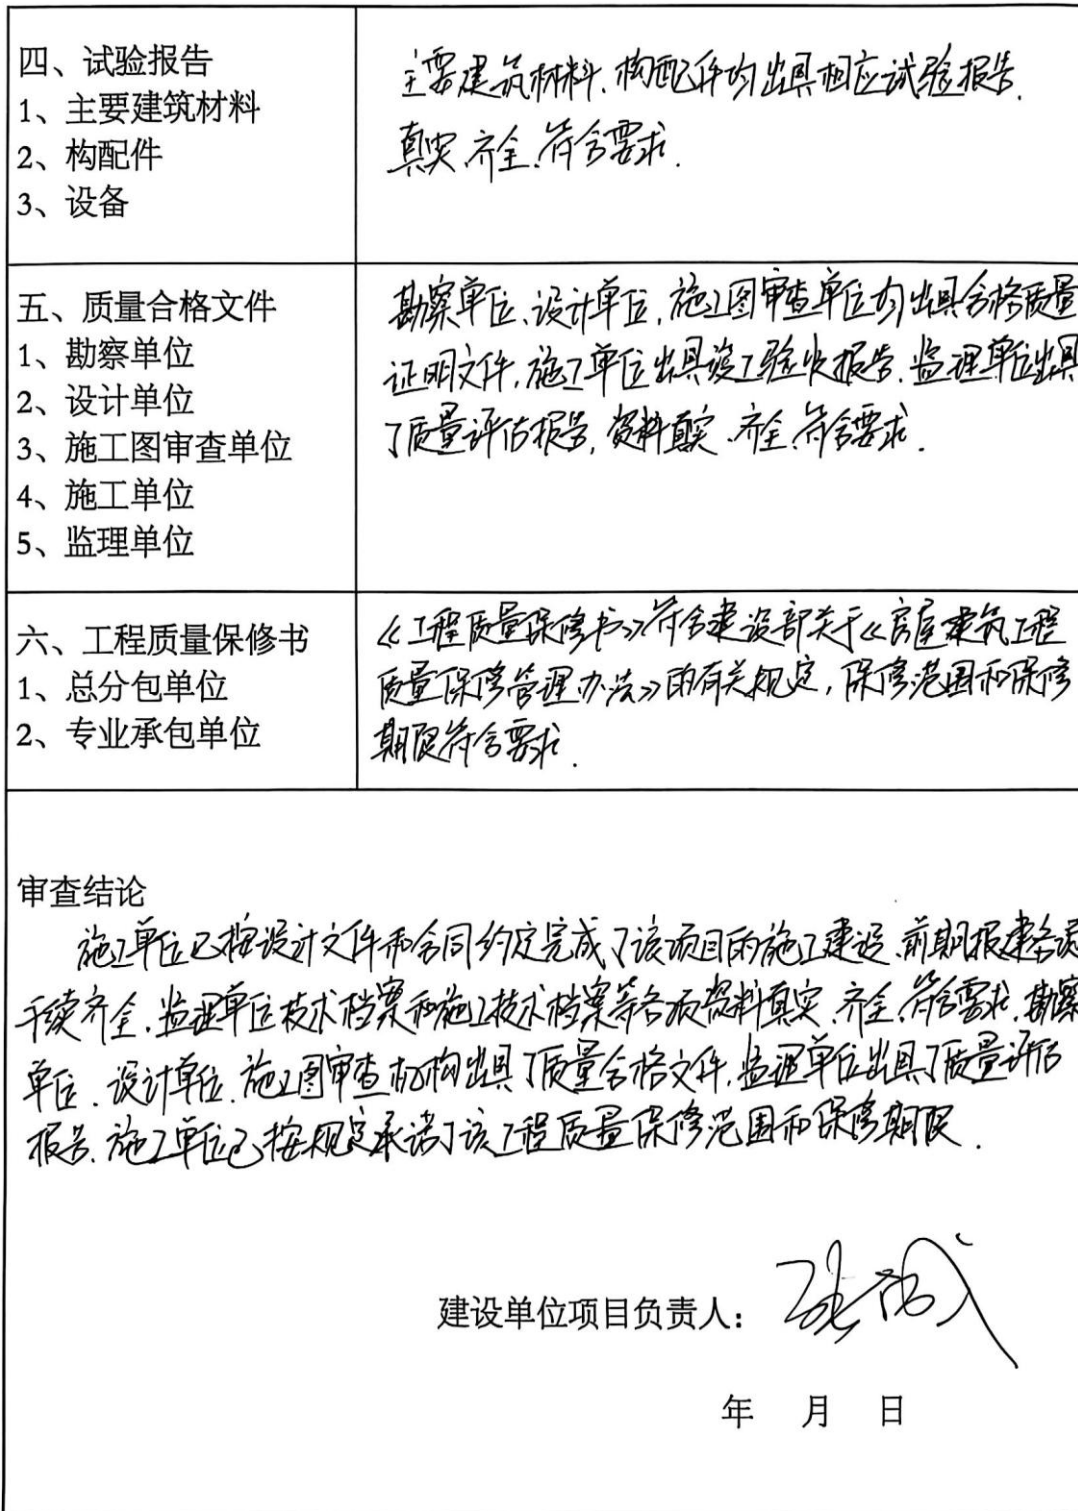 四、试验报告
1、主要建筑材料
2、构配件
3、设备
主要建筑材料、构配件均出具相应试验报告.
真实、齐全、符合要求.
五、质量合格文件
1、勘察单位
2、设计单位
3、施工图审查单位
4、施工单位
5、监理单位
勘察单位、设计单位、施工图审查单位均出具合格质量
证明文件,施工单位出具竣工验收报告、监理单位出具
了质量评估报告,资料真实、齐全、符合要求.
六、工程质量保修书
1、总分包单位
2、专业承包单位
《工程质量保修书》符合建设部关于《房屋建筑工程
质量保修管理办法》的有关规定,保修范围和保修
期限符合要求.
审查结论
施工单位已按设计文件和合同约定完成了该项目的施工建设、前期报建各项
手续齐全、监理单位技术档案和施工技术档案等各项资料真实、齐全、符合要求、勘察
单位、设计单位、施工图审查机构出具了质量合格文件,监理单位出具了质量评估
报告、施工单位已按规定承诺了该工程质量保修范围和保修期限.
建设单位项目负责人:
年 月 日